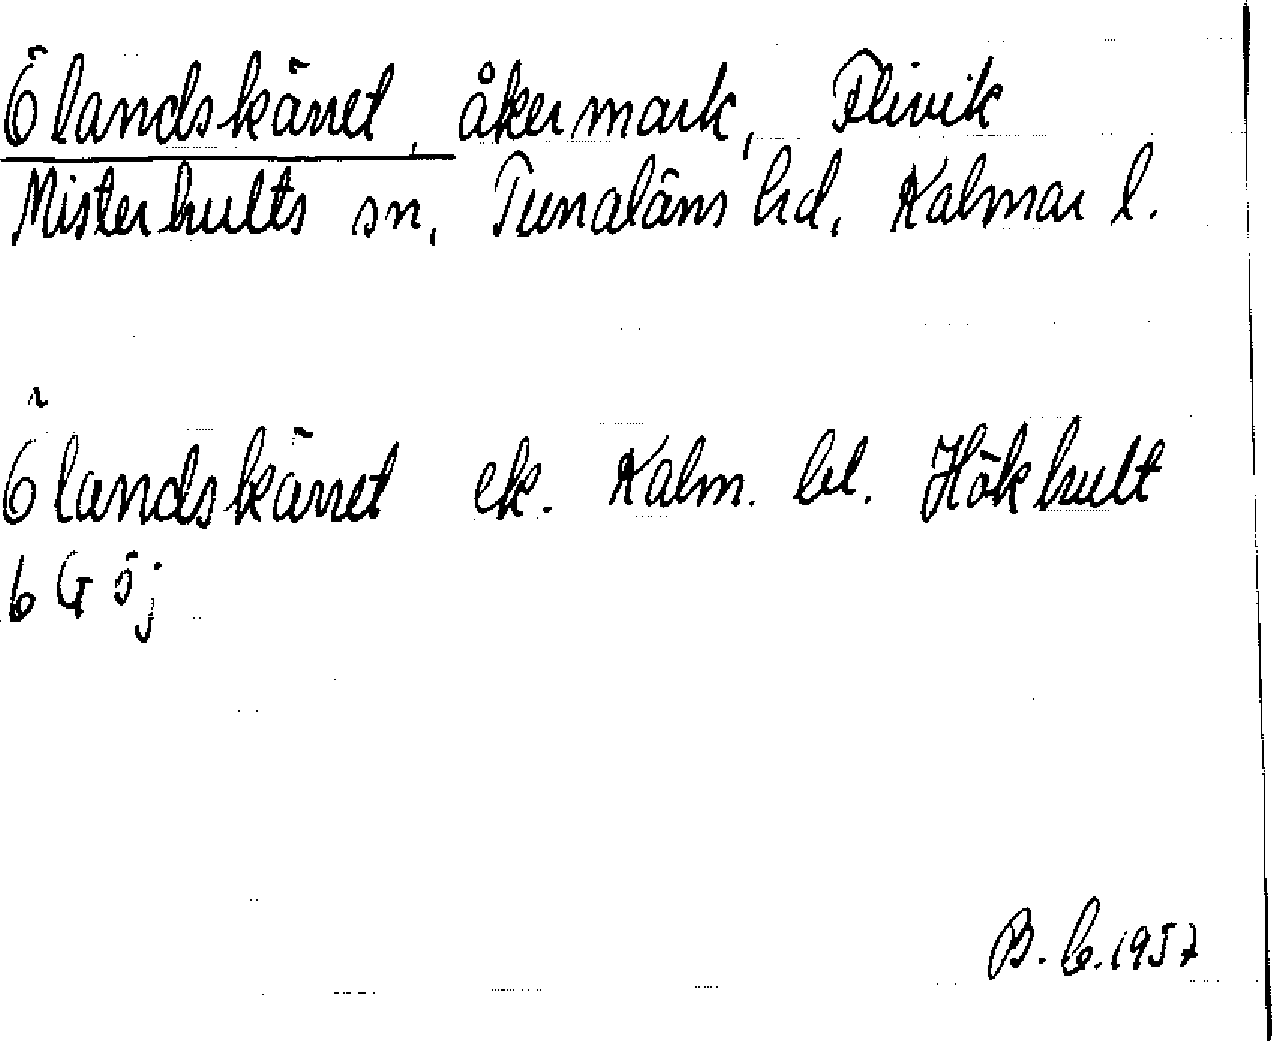 Ölandskärret, åkermark, Flivik
Misterhults sn, Tunaläns hd, Kalmar l.
Ölandskärret ek. Kalm. bl. Hökhult
6 G öj
B. C. 1957